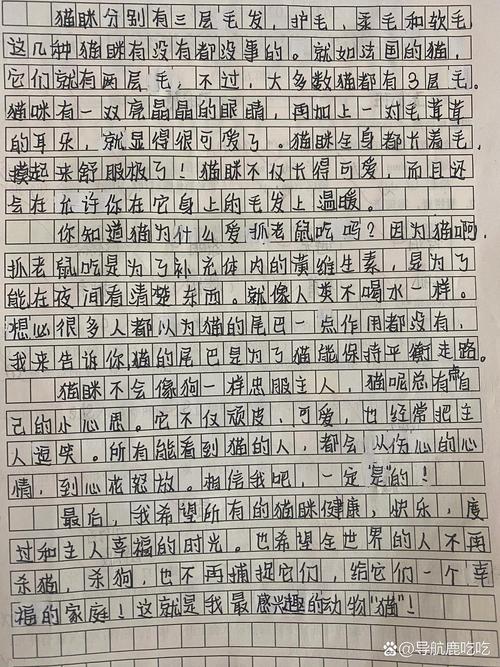 猫咪分别有三层毛发，护毛，柔毛和软毛
这几种猫咪有没有都没事的。就如法国的猫，
它们就有两层毛，不过，大多数猫都有3层毛。
猫咪有一双亮晶晶的眼睛，再加上一对毛茸茸
的耳朵，就显得很可爱了。猫咪全身都长着毛，
摸起来舒服极了！猫咪不仅长得可爱，而且还
会在允许你在它身上的毛发上温暖。
你知道猫为什么爱抓老鼠吃吗？因为猫啊，
抓老鼠吃是为了补充体内的黄维生素，是为了
能在夜间看清楚东西。就像人类不喝水一样。
想必很多人都以为猫的尾巴一点作用都没有，
我来告诉你，猫的尾巴是为了猫能保持平衡走路。
猫咪不会像狗一样忠服主人，猫呢总有自
己的小心思。它不仅顽皮、可爱，也经常把主
人逗笑。所有能看到猫的人，都会从伤心的心
情，到心花怒放。相信我吧，一定"是"的！
最后，我希望所有的猫咪健康，快乐，度
过和主人幸福的时光。也希望全世界的人不再
杀猫，杀狗，也不再捕捉它们，给它们一个幸
福的家庭！这就是我最感兴趣的动物"猫"！
@导航鹿吃吃